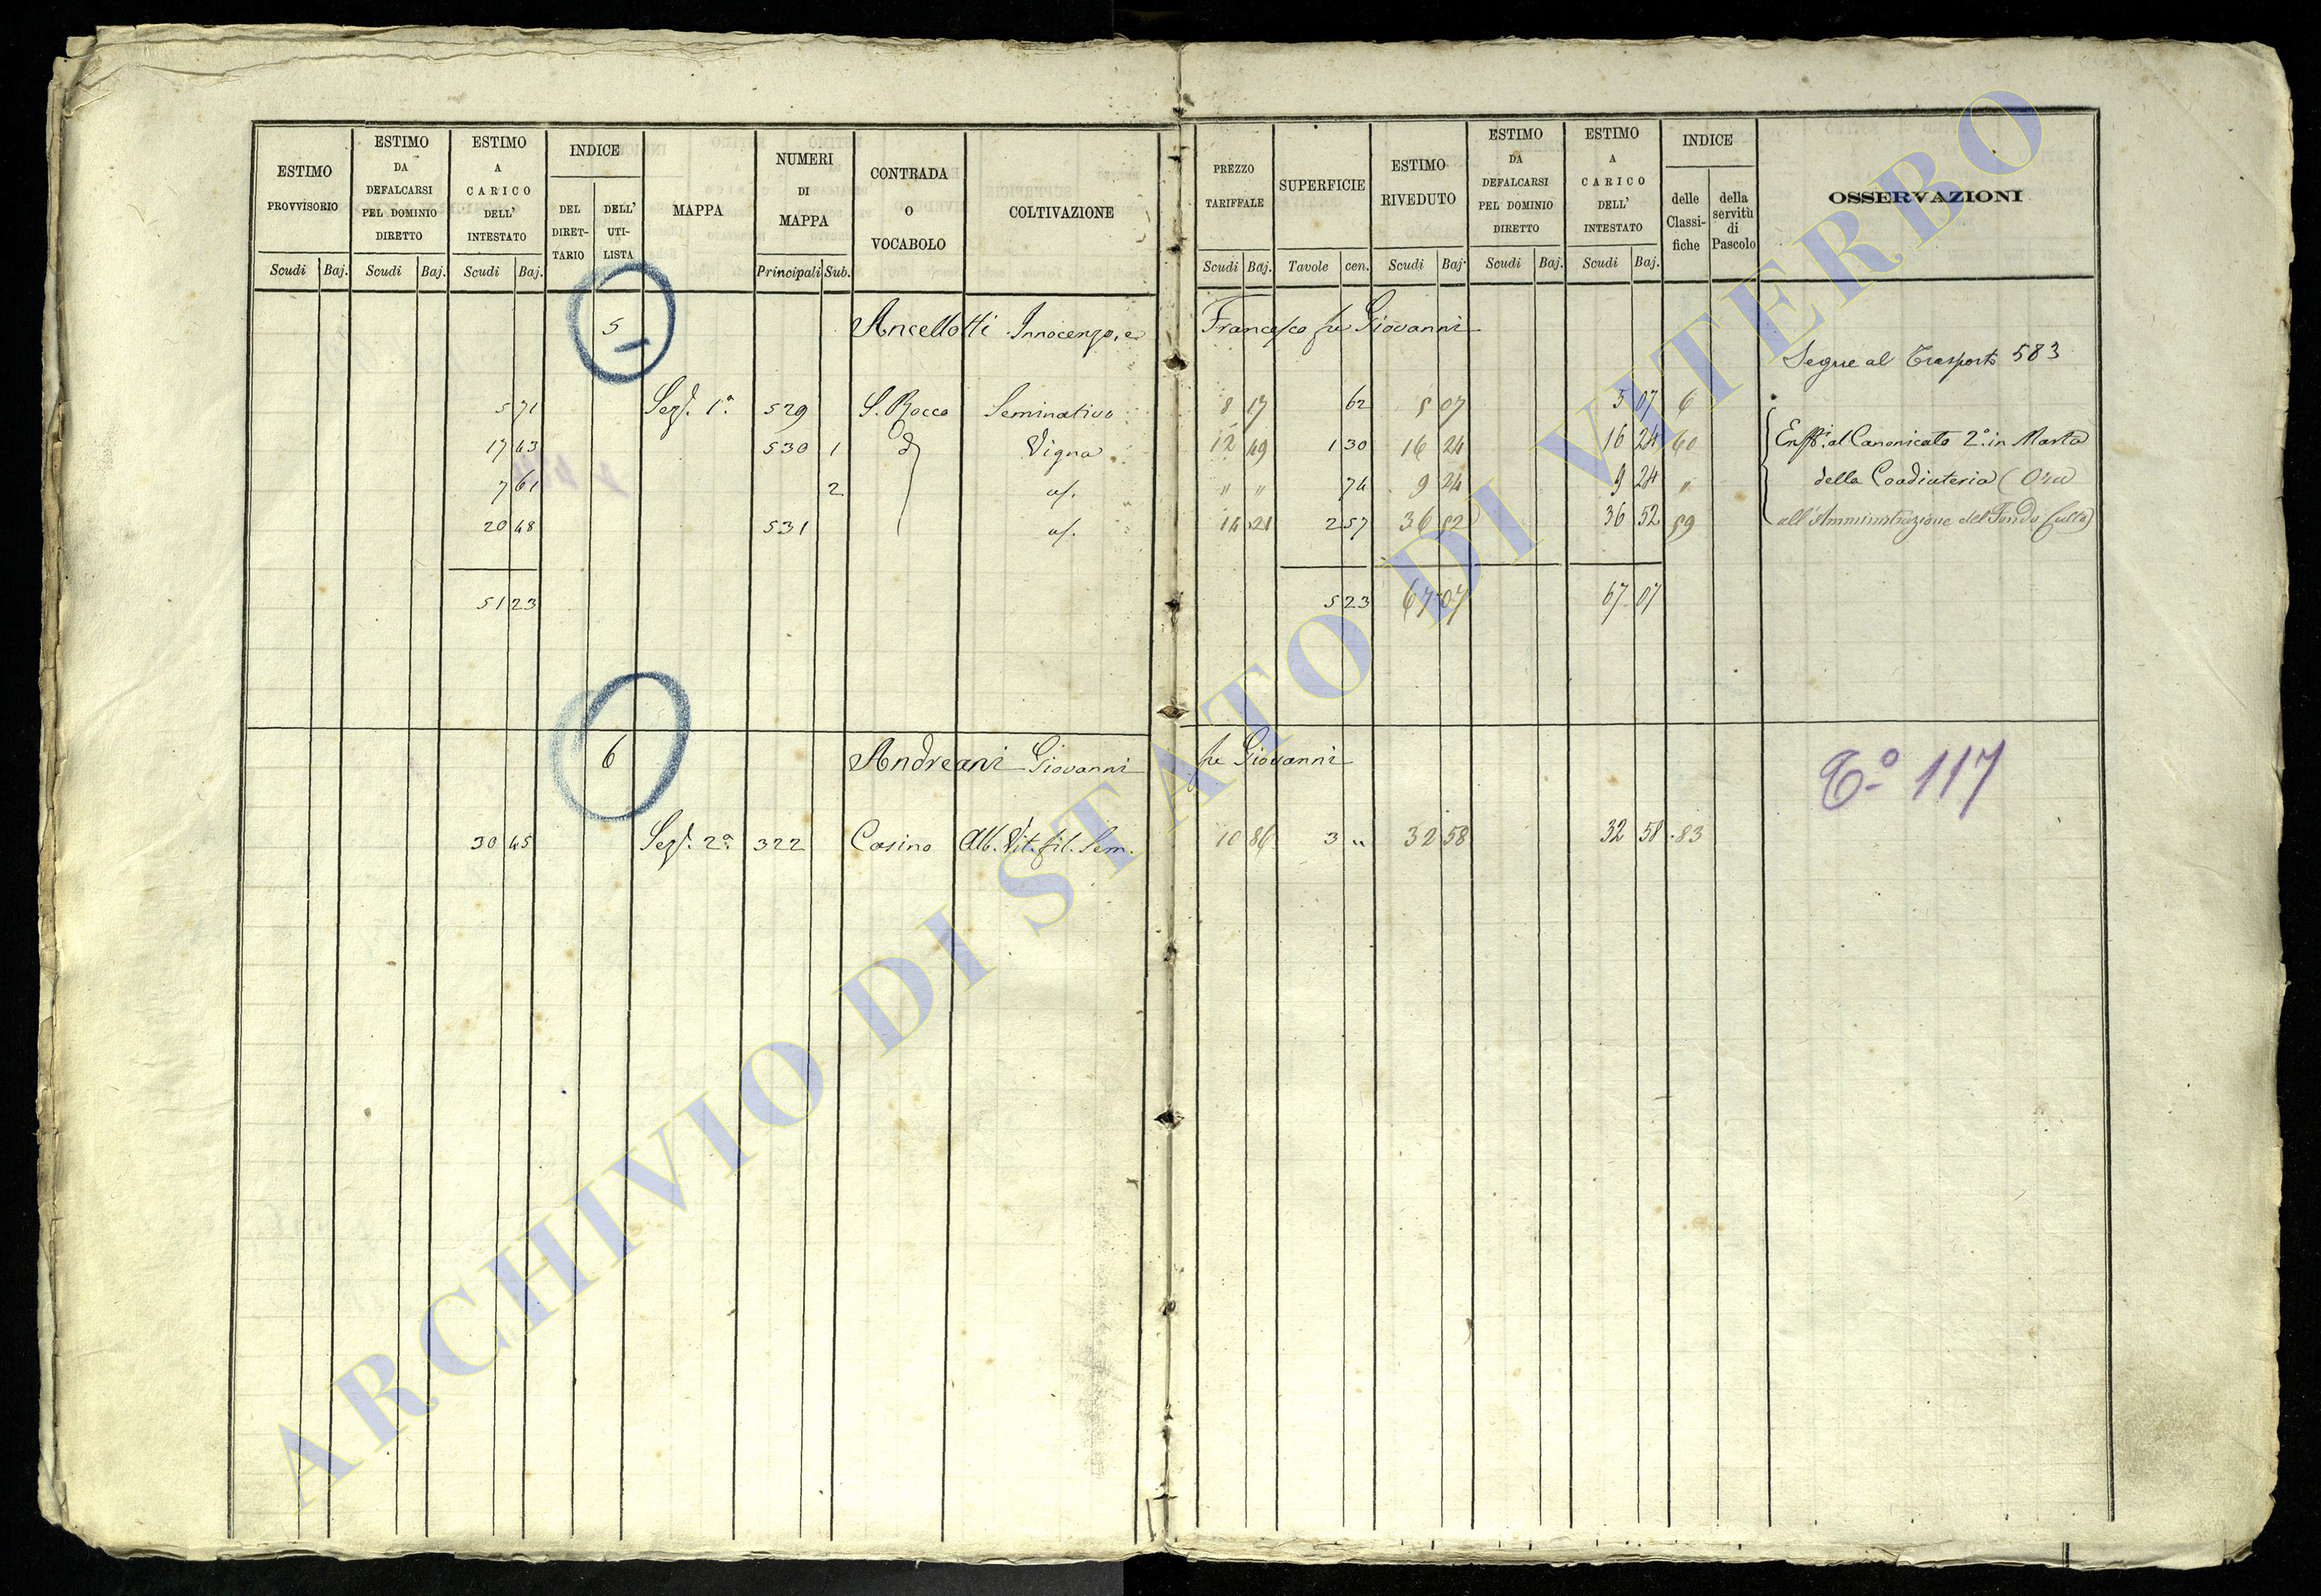 ESTIMO PROVVISORIO
Scudi Baj.
ESTIMO DA DEFALCARSI PEL DOMINIO DIRETTO
Scudi Baj.
ESTIMO A CARICO DELL' INTESTATO
Scudi Baj.
INDICE
DEL DIRET- TARIO
DELL' UTI- LISTA
MAPPA
NUMERI DI MAPPA
Principali Sub.
CONTRADA O VOCABOLO
COLTIVAZIONE
PREZZO TARIFFALE
Scudi Baj.
SUPERFICIE
Tavole cen.
ESTIMO RIVEDUTO
Scudi Baj.
ESTIMO DA DEFALCARSI PEL DOMINIO DIRETTO
Scudi Baj.
ESTIMO A CARICO DELL' INTESTATO
Scudi Baj.
INDICE
delle Classi- fiche
della servitù di Pascolo
OSSERVAZIONI
5 Ancellotti Innocenzo, e Francesco fu Giovanni
Segue al Trasporto 583
5 71 Sez. 1a 529 S. Rocco Seminativo 8 17 62 5 07 5 07 6
17 43 530 1 d Vigna 12 49 1 30 16 24 16 24 60 Enf. al Canonicato 2o in Marta
7 61 2 id. " " 74 9 24 9 24 " della Coadiuteria (Ora
20 48 531 id. 14 21 2 57 36 52 36 52 59 all'Amministrazione del Fondo Culto)
51 23 5 23 67 07 67 07
6 Andreani Giovanni fu Giovanni To 117
30 45 Sez. 2a 322 Casino Alb. Vit. fil. Sem. 10 86 3 " 32 58 32 58 83
ARCHIVIO DI STATO DI VITERBO